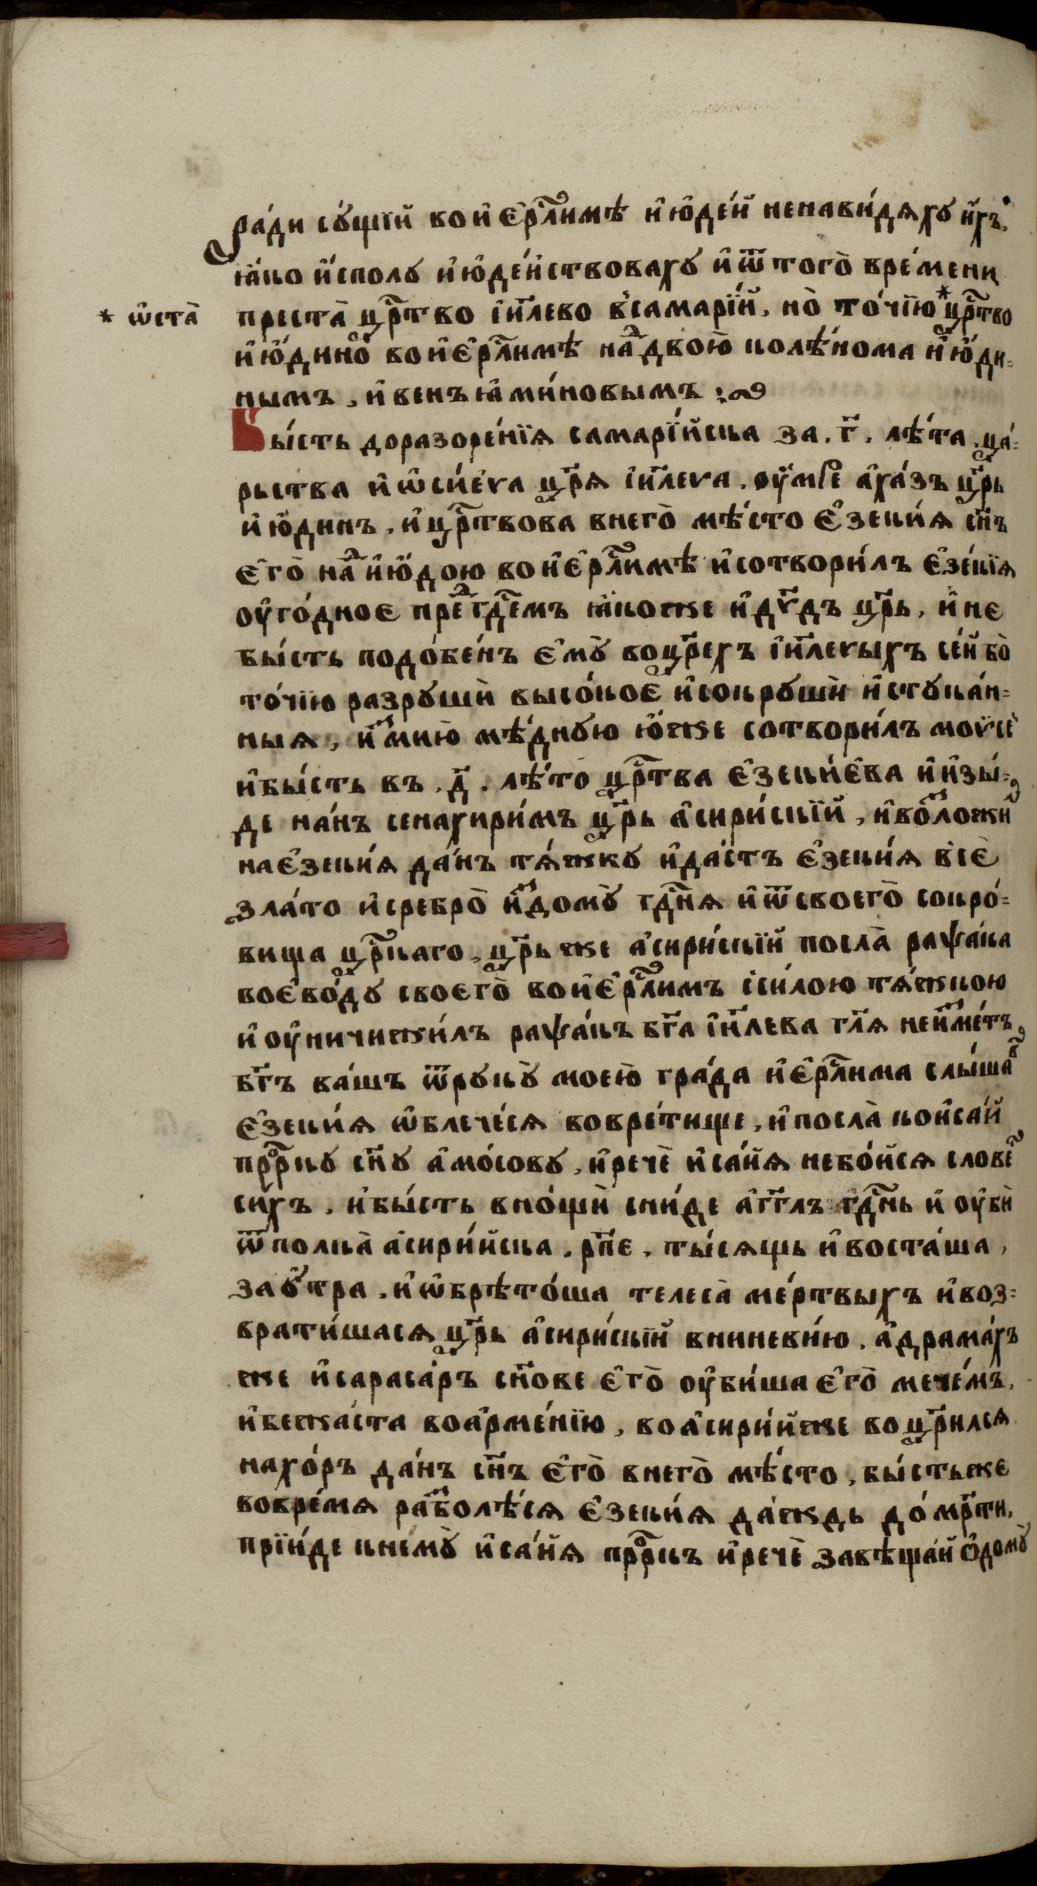 ра́ди сꙋ́щїй во и҆ е҆рⷭ҇ли́мѣ и҆ ю҆де́й ненави́дѧхꙋ и҆́хъ,
ꙗ҆́ко и҆́сполꙋ и҆ ю҆де́йствовахꙋ и҆ ѿ того̀ вре́мени
* ѡ҆ста̀
преста̀ црⷭ҇тво і҆и҃лево в самарі́й, но̀ то́чїю * црⷭ҇тво
и҆ ю҆́дино во и҆ е҆рⷭ҇ли́мѣ наⷣ двою̀ колѣ́нома и҆ ю҆́ди-
нымъ, и҆ венъꙗ҆ми́новымъ
Бы́сть до разоре́нїѧ самарі́йска за . г҃ . лѣ́та ца́-
рьства и҆ ѡ҆си́ева цр҃ѧ і҆и҃лева, ᲂу҆́мре а҆ха́зъ цр҃ь
и҆ ю҆́динъ, и҆ црⷭ҇твова в него̀ мѣ́сто е҆зеки́ѧ сн҃ъ
е҆го̀ наⷣ и҆ ю҆́дою во и҆ е҆рⷭ҇ли́мѣ и҆ сотвори́лъ е҆зекі́ѧ
ᲂу҆го́дное преⷣ гдⷭ҇емъ ꙗ҆́коже и҆ дв҃дъ цр҃ь, и҆ не
бы́сть подо́бенъ е҆мꙋ̀ во цр҃ехъ і҆и҃левыхъ се́й бо̀
то́чїю разрꙋшѝ высо́кое и҆ сокрꙋшѝ и҆стꙋка́н-
ныѧ, и҆ ѕмию̀ мѣ́днꙋю ю҆́же сотвори́лъ моѵсе́
и҆ бы́сть въ . д҃ . лѣ́то црⷭ҇тва е҆зеки́ева и҆ и҆зы́-
де на́нъ сенахири́мъ цр҃ь а҆сири́скїй, и҆ воⷥложи
на е҆зеки́ѧ да́нь тѧ́жкꙋ и҆ да́стъ е҆зеки́ѧ всѐ
зла́то и҆ сребро̀ и҆ⷥ домꙋ̀ гдⷭ҇нѧ и҆ ѿ своего̀ сокро́-
вища цр҃каго, цр҃ь же а҆сири́скїй посла̀ раѱа́ка
воево́дꙋ своего̀ во и҆ е҆рⷭ҇ли́мъ с си́лою тѧ́жкою
и҆ ᲂу҆ничижи́лъ раѱа́къ бг҃а і҆и҃лева гл҃ѧ не и҆́ⷥметъ
бг҃ъ ва́шъ ѿ рꙋкꙋ̀ моею̀ гра́да и҆ е҆рⷭ҇ли́ма слы́шаⷡ
е҆зеки́ѧ ѡ҆блече́сѧ во вре́тище, и҆ посла̀ ко и҆са́й
прⷪ҇ркꙋ сн҃ꙋ а҆мо́совꙋ, и҆ речѐ и҆са́йѧ не бо́йсѧ слове́ⷭ
си́хъ, и҆ бы́сть в нощѝ сни́де а҆гг҃лъ гдⷭ҇нь и҆ ᲂу҆бѝ
ѿ полка̀ а҆сири́йска . рп҃е . ты́сѧщь и҆ воста́ша,
заꙋ́тра, и҆ ѡ҆брѣто́ша телеса̀ ме́ртвыхъ и҆ воз-
врати́шасѧ цр҃ь а҆сири́скїй в ниневи́ю, а҆драма́хъ
же и҆ сараса́ръ сн҃ове е҆го̀ ᲂу҆би́ша е҆го̀ мече́мъ,
и҆ бежа́ста во а҆рме́нїю, во а҆сири́йже воцр҃илсѧ
нахо́ръ да́нъ сн҃ъ е҆го̀ в него̀ мѣ́сто, бы́стьже
во вре́мѧ раⷥболѣ́сѧ е҆зеки́ѧ да́ждь до́ смрⷭ҇ти,
прїи́де к немꙋ̀ и҆са́йѧ прⷪ҇ркъ и҆ речѐ завѣща́й ѡ҆ домꙋ̀